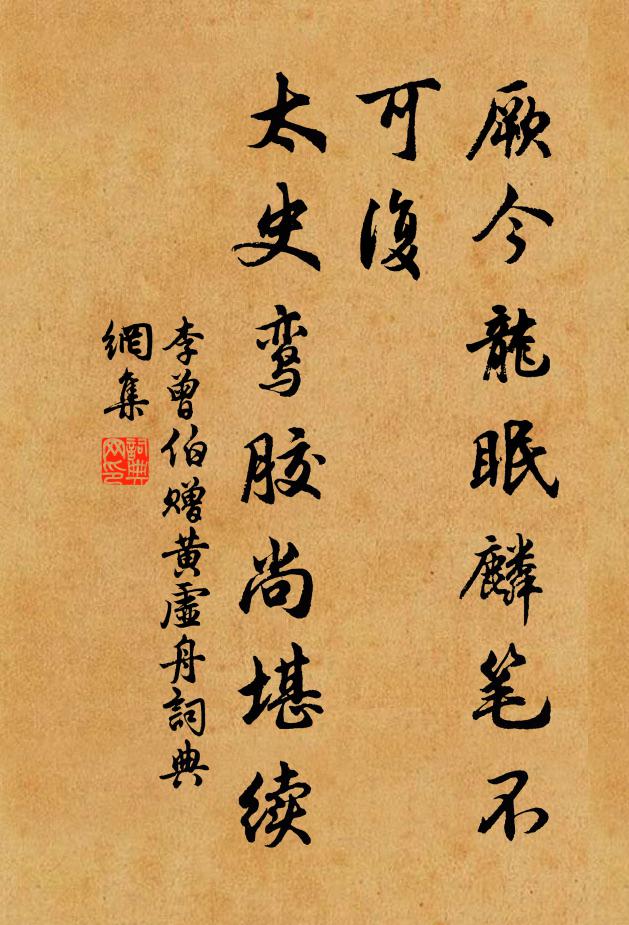 厥今龍眠麟笔不
可復
太史鸾胶尚堪续
李曾伯赠黄虛舟詞典
網集
詞典
网印